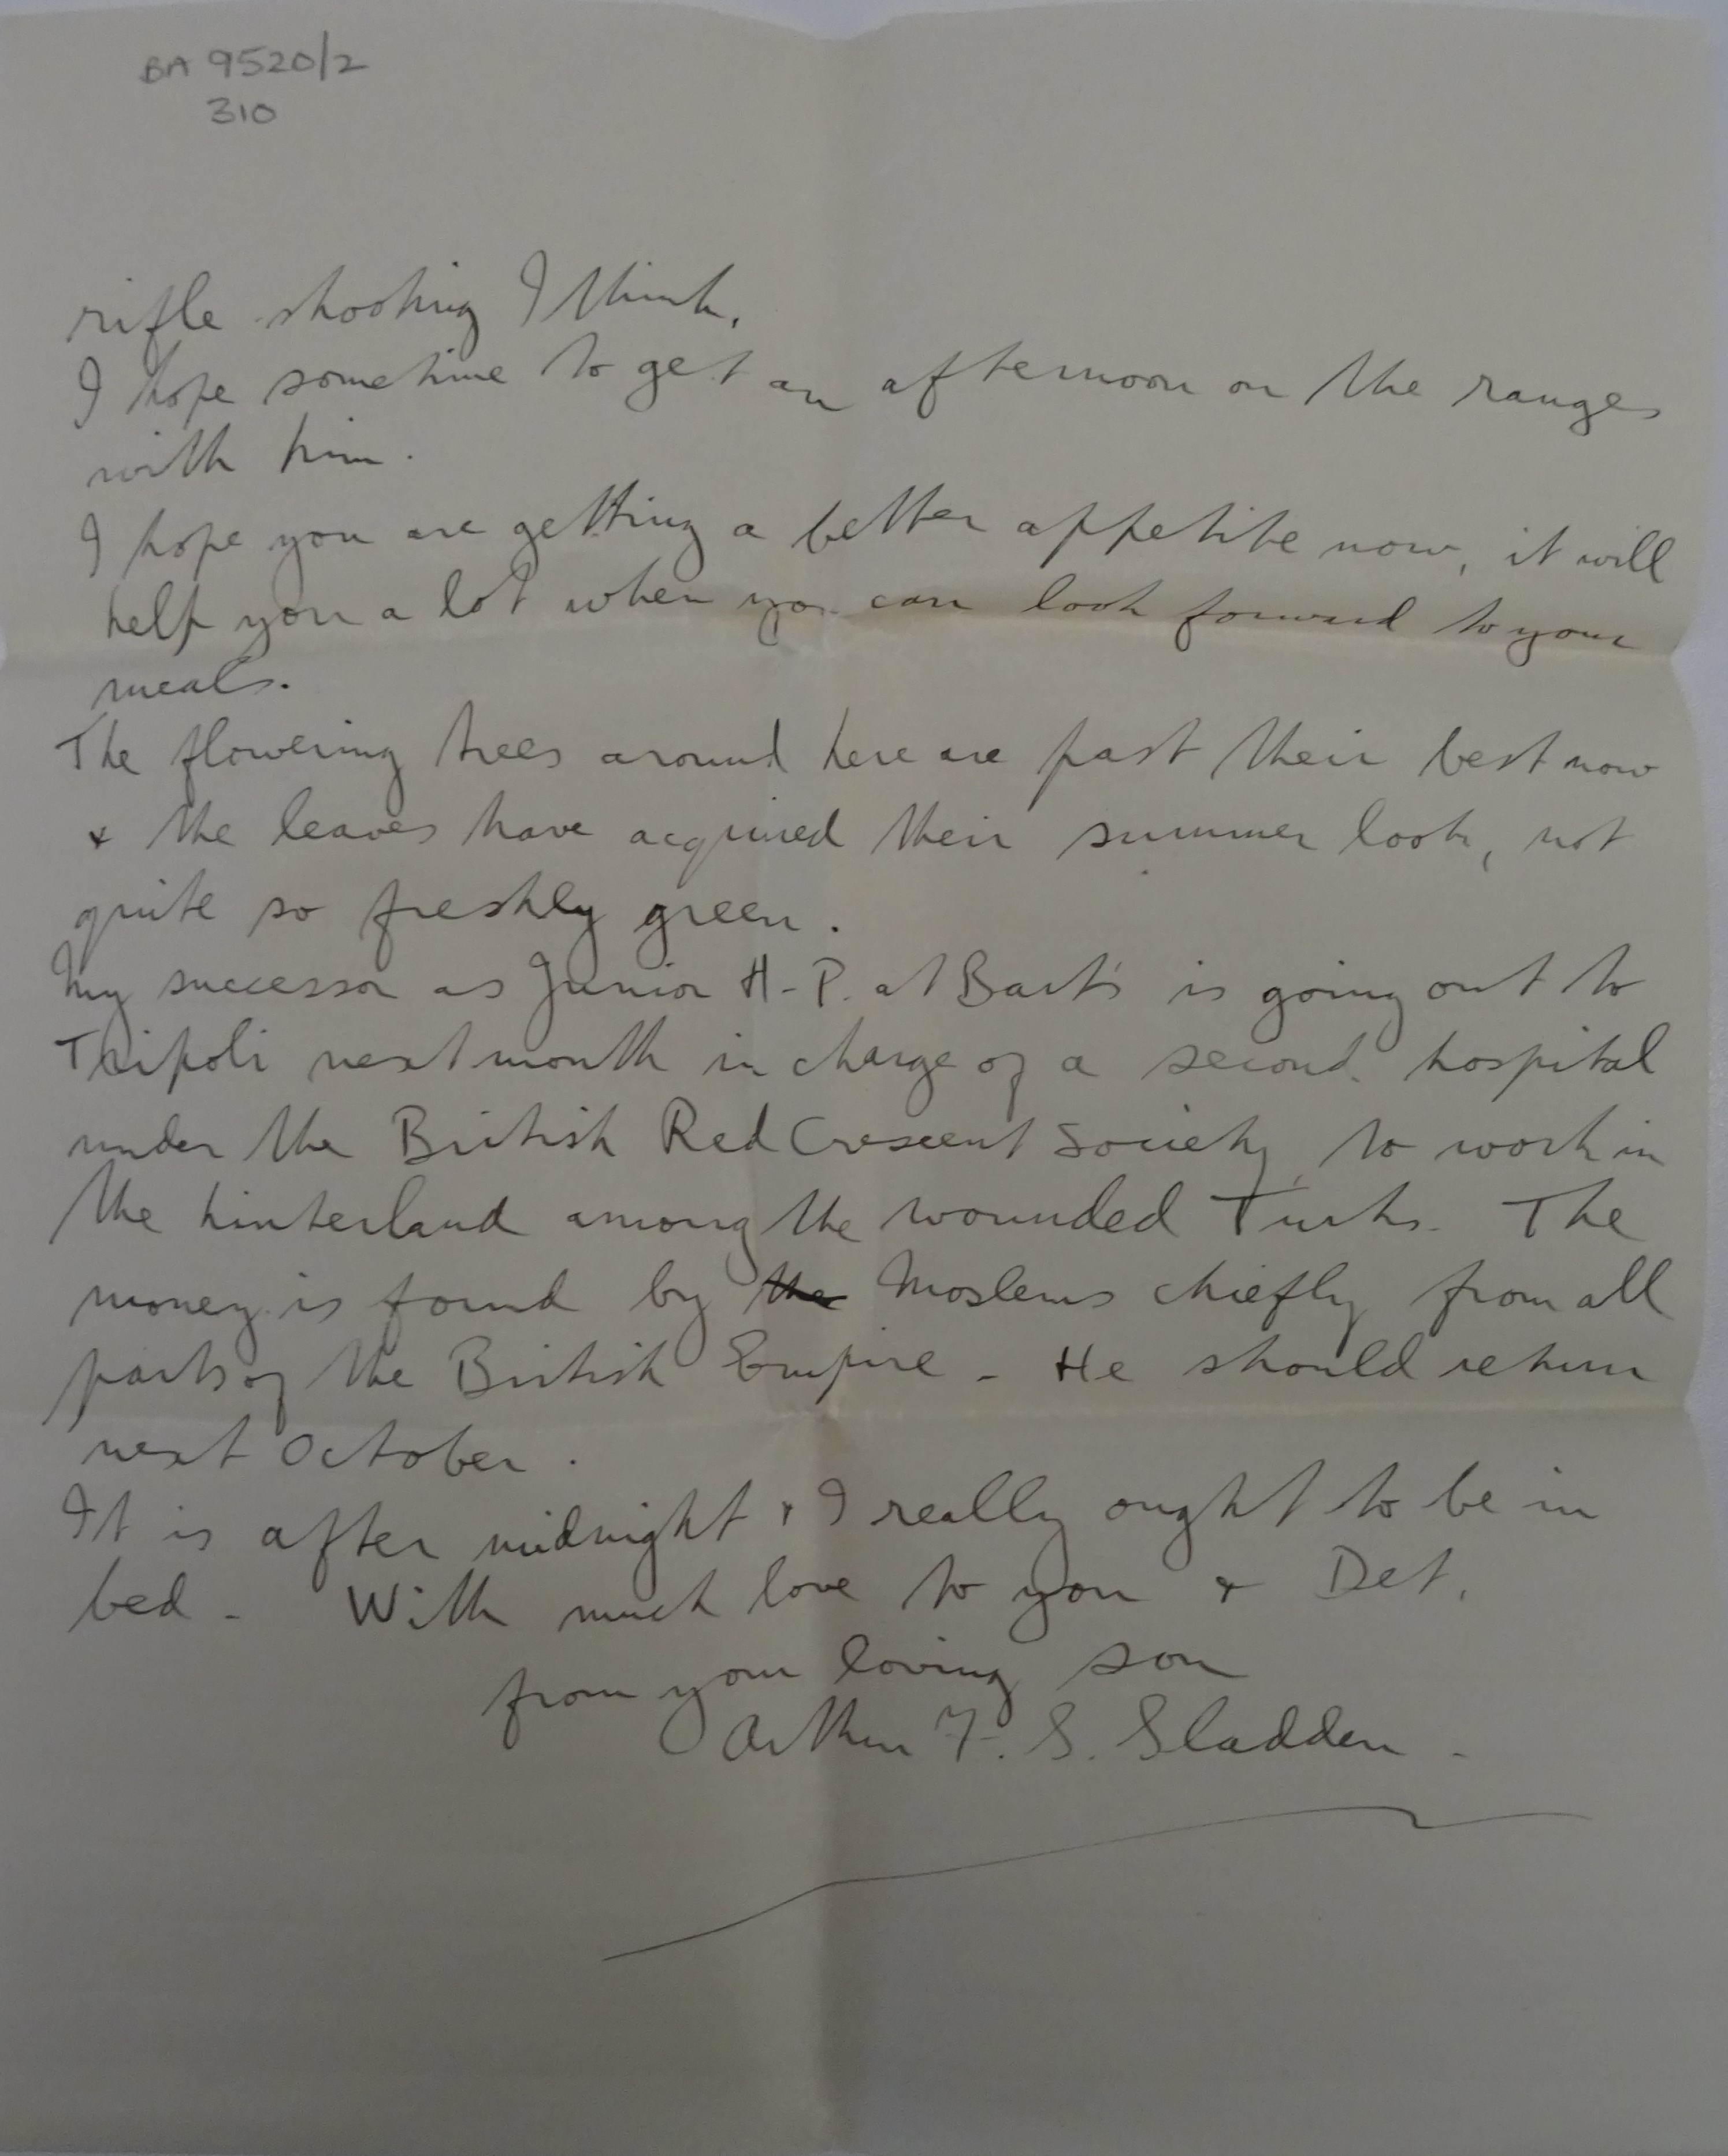 BA 9520/2
310
rifle shooting I think.
I hope sometime to get an afternoon on the ranges
with him.
I hope you are getting a better appetite now, it will
help you a lot when you can look forward to your
meals.
The flowering trees around here are past their best now
& the leaves have acquired their summer look, not
quite so freshly green.
My successor as Junior H-P. at Bart's is going out to
Tripoli next month in charge of a second hospital
under the British Red Crescent Society, to work in
the hinterland among the wounded Turks. The
money is found by the Moslems chiefly from all
parts of the British Empire - He should return
next October.
It is after midnight & I really ought to be in
bed - With much love to you & Det.
from your loving son
Arthur F. S. Sladden -